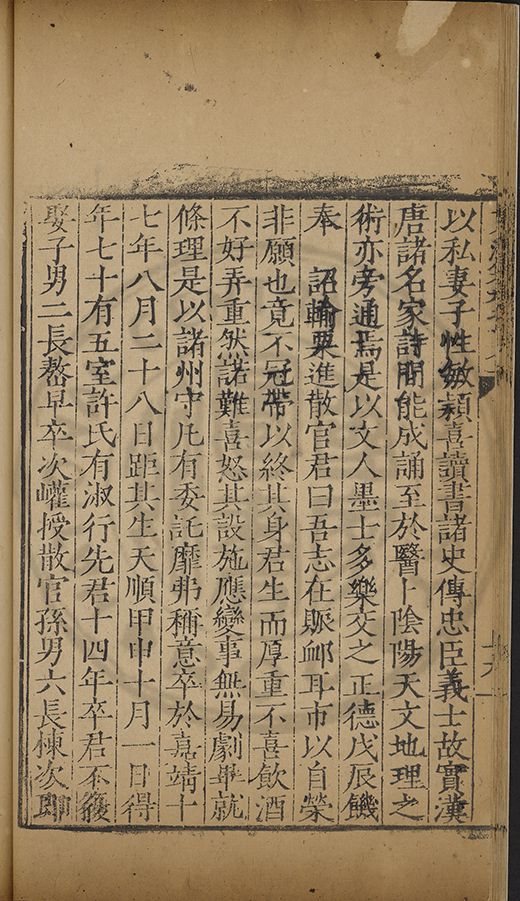 以私妻子性敏穎喜讀書諸史傳忠臣義士故實漢
唐諸名家詩間能成誦至於醫卜陰陽天文地理之
術亦旁通焉是以文人墨士多樂交之正德戊辰饑
奉 詔輸粟進散官君曰吾志在賑卹耳市以自榮
非願也竟不冠帶以終其身君生而厚重不喜飲酒
不好弄重然諾難喜怒其設施應變事無易劇畢就
條理是以諸州守凡有委託靡弗稱意卒於嘉靖十
七年八月二十八日距其生天順甲申十月一日得
年七十有五室許氏有淑行先君十四年卒君不復
娶子男二長嶅早卒次㠢授散官孫男六長棟次即